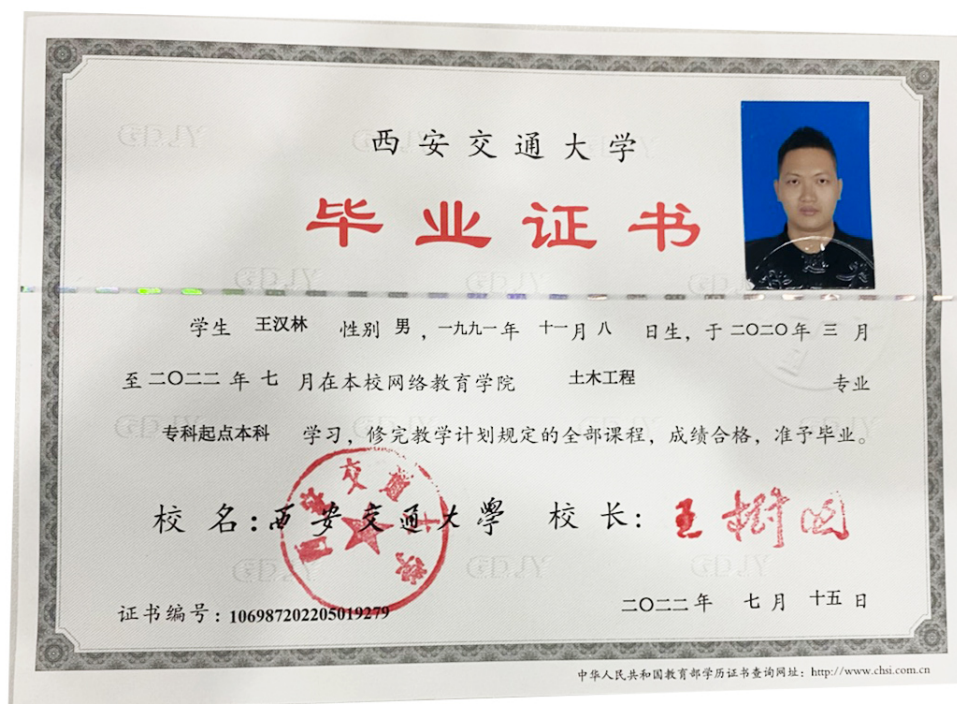 西安交通大学
毕业证书
学生 王汉林 性别 男，一九九一年 十一月 八 日生，于二〇二〇年 三 月
至二〇二二年 七 月在本校网络教育学院 土木工程 专业
专科起点本科 学习，修完教学计划规定的全部课程，成绩合格，准予毕业。
校名：西安交通大學 校长：王樹国
证书编号：106987202205019279
二〇二二年 七月 十五日
中华人民共和国教育部学历证书查询网址：http://www.chsi.com.cn
GDJY
GDJY
GDJY
GDJY
GDJY
GDJY
GDJY
GDJY
西安交通大学